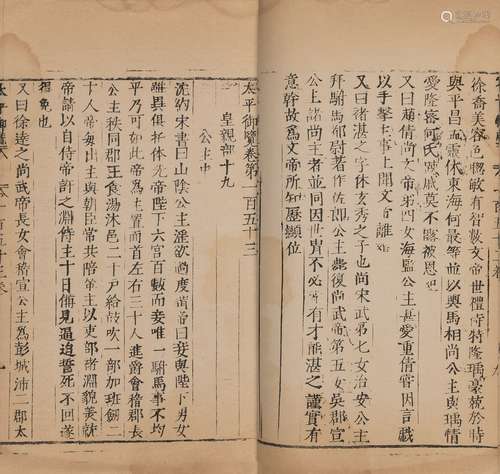 徐喬美容貌有智數文帝世禮待特隆瑀豪競於時
與平昌孟靈休東海何最等並以輿馬相尚公主與瑀情
愛隆密何氏疎戚莫不霑被恩紀
又曰趙倩尚文帝第四女海鹽公主甚愛重倩嘗因言戲
以手擊主事上聞文帝離婚
又曰褚湛之字休玄秀之子也尚宋武第七女治安公主
拜駙馬都尉著作佐郎公主薨復尚武帝第五女吳郡宣
公主諸尚主者並因世冑不必有才能湛之謹實有
意幹故爲文帝所知歷顯位
太平御覽卷第一百五十三
皇親部十九
公主中
沈約宋書曰山陰公主淫欲過度謂帝曰妾與陛下男女
雖異俱托體先帝陛下六宮百數而妾唯一駙馬事不均
平乃可如此帝爲主置面首左右三十人進爵會稽郡長
公主秩同郡王食湯沐邑二十戶給鼓吹一部加班劍二
十人帝每出主與朝臣常共陪輦主以吏部郎淵貌美就
帝請以自侍帝許之淵侍主十日備見逼迫誓死不回遂
得免也
又曰徐逵之尚武帝長女會稽宣公主爲彭城沛二郡太
太平御覽